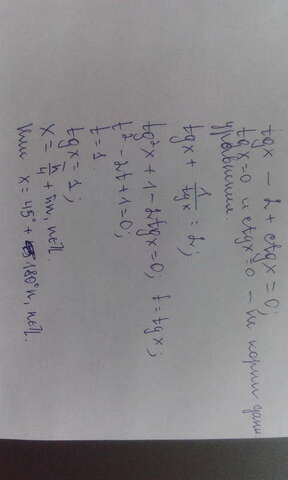 tgx - 2 + ctgx = 0;
tgx = 0 и ctgx = 0 - не корни данн
уравнения.
tgx + 1/tgx = 2;
tg²x + 1 - 2tgx = 0; t = tgx;
t² - 2t + 1 = 0;
t = 1.
tgx = 1;
x = π/4 + πn, n∈Z.
или x = 45° + 180°n, n∈Z.